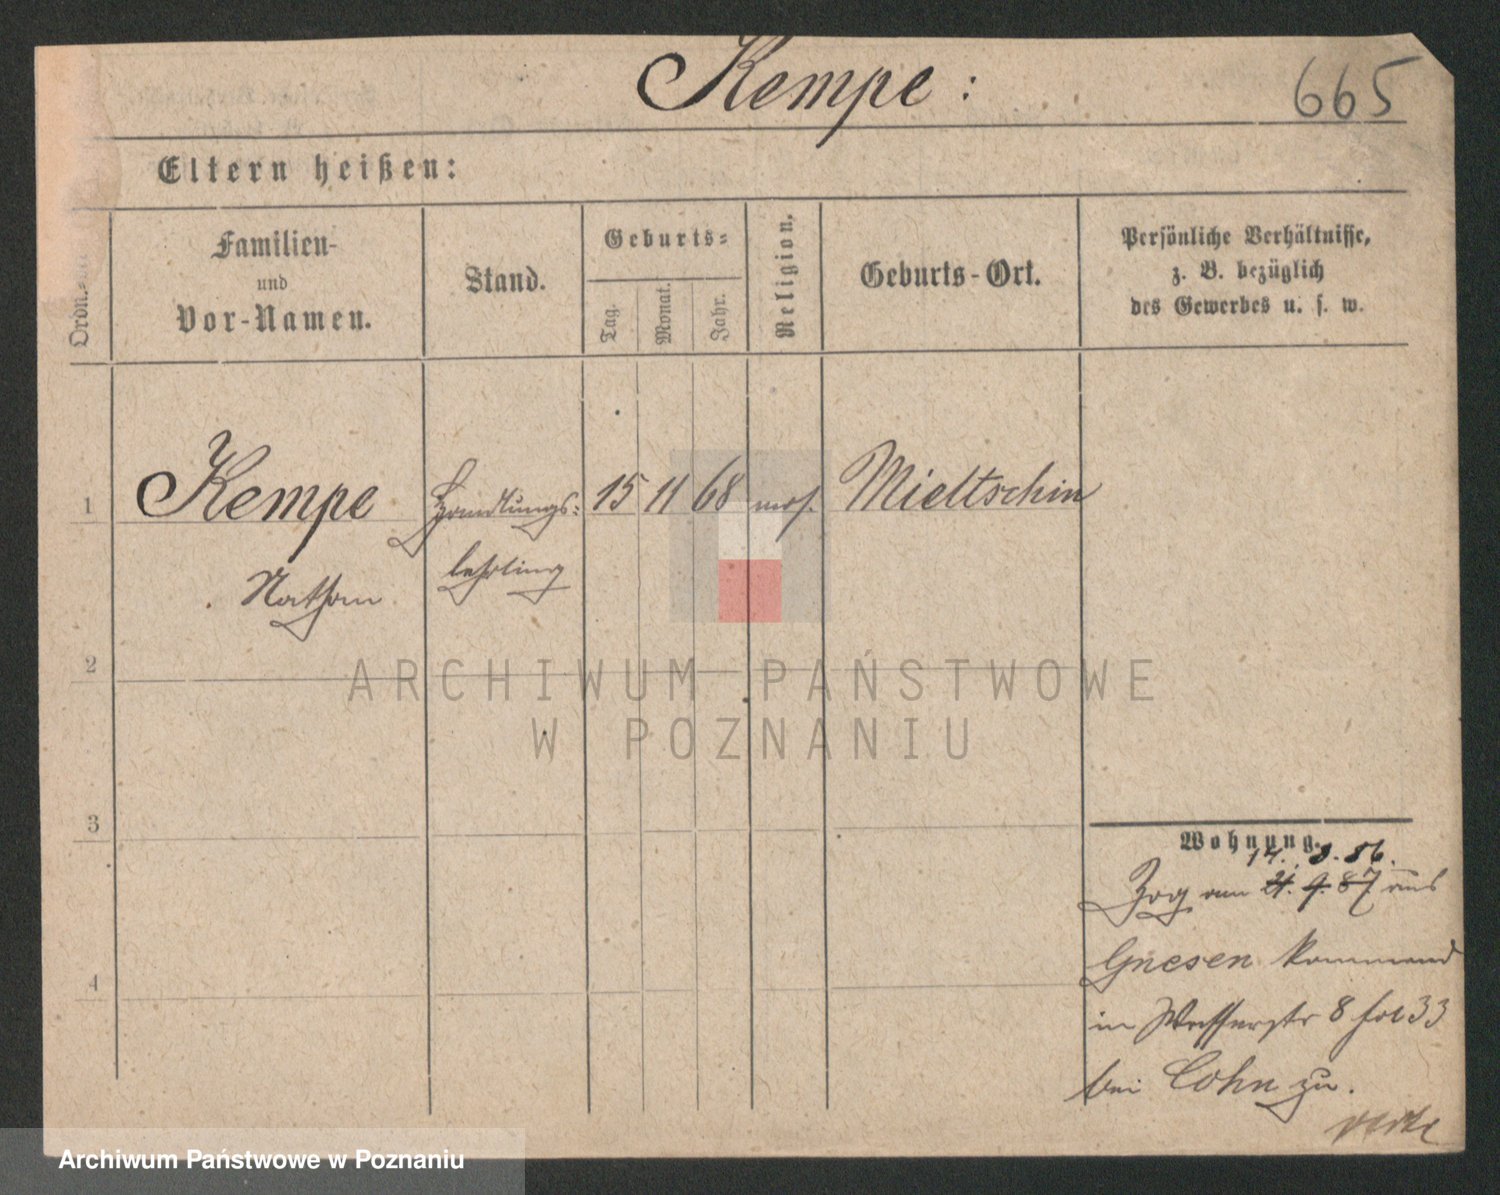 Kempe :
665
Eltern heißen:
Ordn.
Familien-
und
Vor-Namen.
Stand.
Geburts-
Tag.
Monat.
Jahr.
Religion.
Geburts-Ort.
Persönliche Verhältnisse,
z. B. bezüglich
des Gewerbes u. s. w.
1
Kempe
Nathan
Handlungs-
lehrling
15
11
68
mos.
Mieltschin
2
ARCHIWUM PAŃSTWOWE
W POZNANIU
3
4
Wohnung.
14. 8. 86.
Zog am 21. 9. 87 aus
Gnesen kommend
in Wasserstr 8 fol 33
bei Cohn zu.
Archiwum Państwowe w Poznaniu